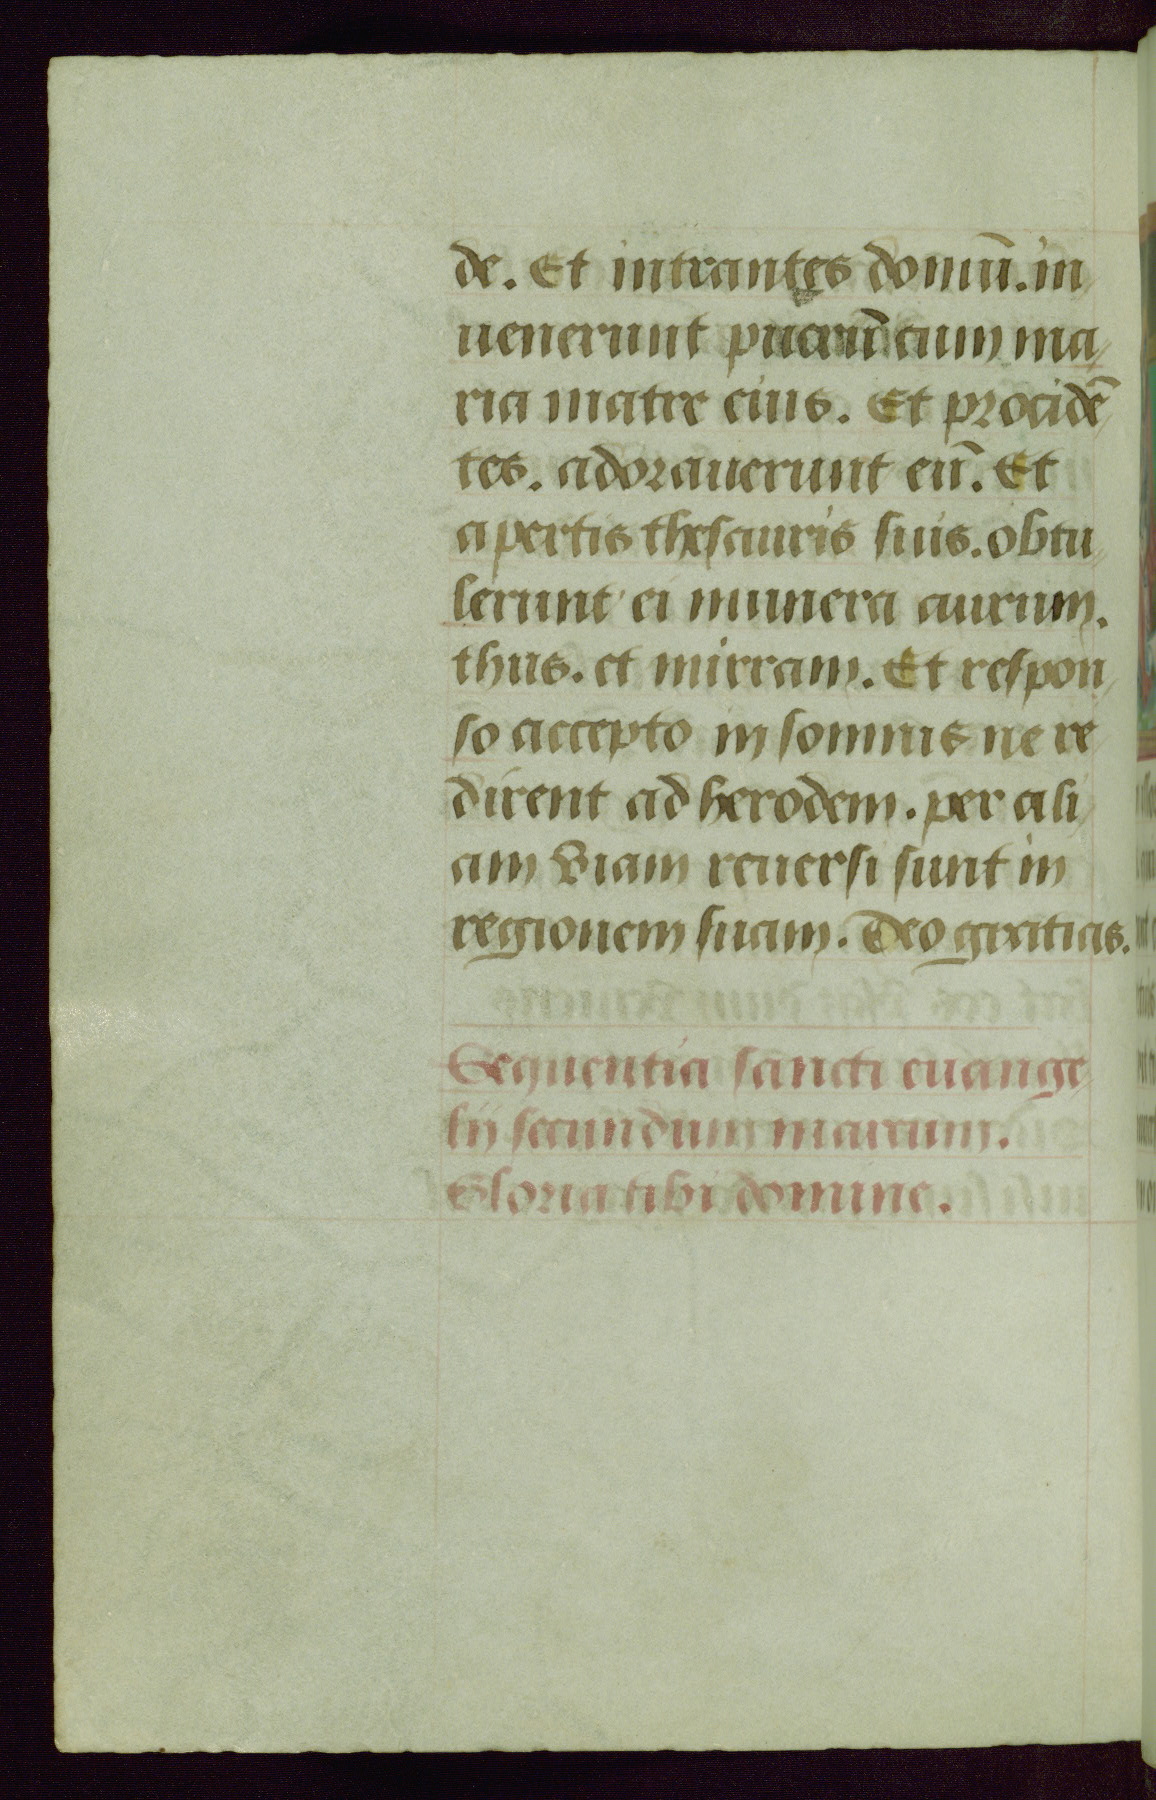 de. Et intrantes domū. in
uenerunt puerū cum ma
ria matre eius. Et procidē
tes. adorauerunt eū. Et
apertis thesauris suis. obtu
lerunt ei munera aurum.
thus. et mirram. Et respon
so accepto in somnis ne re
dirent ad herodem. per ali
am viam reuersi sunt in
regionem suam. Deo gratias.
Sequentia sancti euange
lij secundum marcum.
Gloria tibi domine.